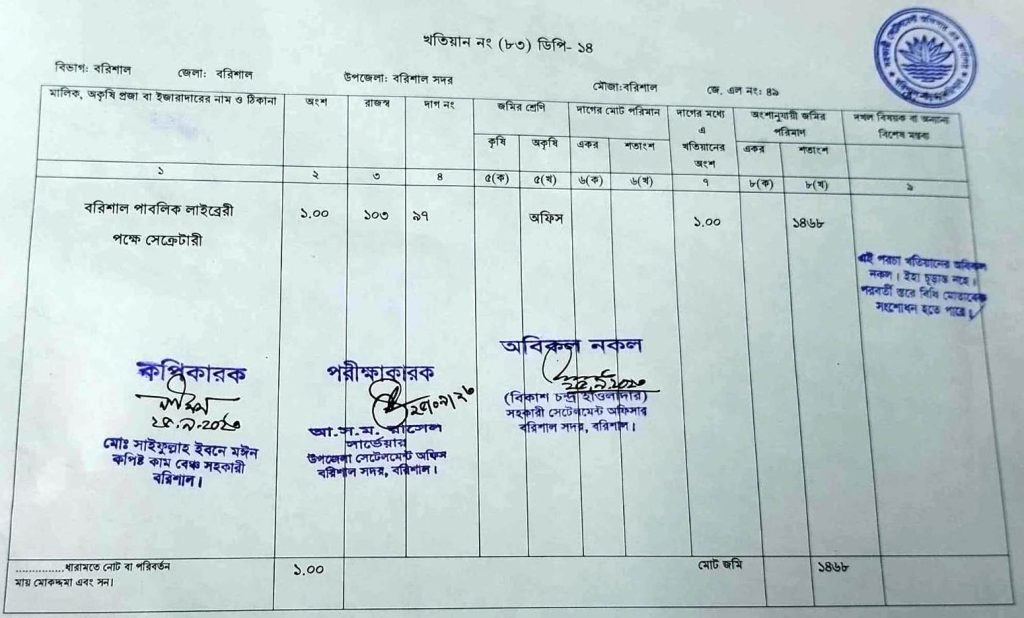 খতিয়ান নং (৮৩) ডিপি- ১৪
বিভাগ: বরিশাল জেলা: বরিশাল উপজেলা: বরিশাল সদর মৌজা:বরিশাল জে. এল নং: ৪৯
মালিক, অকৃষি প্রজা বা ইজারাদারের নাম ও ঠিকানা অংশ রাজস্ব দাগ নং জমির শ্রেণি দাগের মোট পরিমান দাগের মধ্যে অংশানুযায়ী জমির দখল বিষয়ক বা অন্যান্য
এ পরিমাণ বিশেষ মন্তব্য
কৃষি অকৃষি একর শতাংশ খতিয়ানের একর শতাংশ
অংশ
১ ২ ৩ ৪ ৫(ক) ৫(খ) ৬(ক) ৬(খ) ৭ ৮(ক) ৮(খ) ৯
বরিশাল পাবলিক লাইব্রেরী ১.০০ ১০৩ ৯৭ অফিস ১.০০ ১৪৬৮
পক্ষে সেক্রেটারী
এই পরচা খতিয়ানের অবিকল
নকল। ইহা চূড়ান্ত নহে।
পরবর্তী স্তরে বিধি মোতাবেক
সংশোধন হতে পারে।
কপিকারক
মোঃ সাইফুল্লাহ ইবনে মঈন
কপিষ্ট কাম বেঞ্চ সহকারী
বরিশাল।
পরীক্ষাকারক
আ.স.ম. রাসেল
সার্ভেয়ার
উপজেলা সেটেলমেন্ট অফিস
বরিশাল সদর, বরিশাল।
অবিকল নকল
(বিকাশ চন্দ্র হাওলাদার)
সহকারী সেটেলমেন্ট অফিসার
বরিশাল সদর, বরিশাল।
...............ধারামতে নোট বা পরিবর্তন ১.০০ মোট জমি ১৪৬৮
মায় মোকদ্দমা এবং সন।